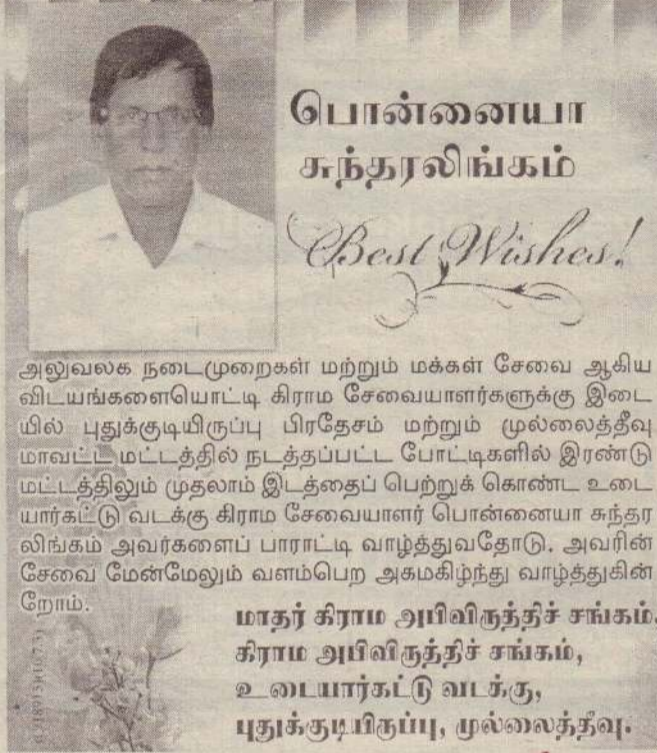 பொன்னையா
சுந்தரலிங்கம்
Best Wishes!
அலுவலக நடைமுறைகள் மற்றும் மக்கள் சேவை ஆகிய
விடயங்களையொட்டி கிராம சேவையாளர்களுக்கு இடை
யில் புதுக்குடியிருப்பு பிரதேசம் மற்றும் முல்லைத்தீவு
மாவட்ட மட்டத்தில் நடத்தப்பட்ட போட்டிகளில் இரண்டு
மட்டத்திலும் முதலாம் இடத்தைப் பெற்றுக் கொண்ட உடை
யார்கட்டு வடக்கு கிராம சேவையாளர் பொன்னையா சுந்தர
லிங்கம் அவர்களைப் பாராட்டி வாழ்த்துவதோடு. அவரின்
சேவை மேன்மேலும் வளம்பெற அகமகிழ்ந்து வாழ்த்துகின்
றோம்.
மாதர் கிராம அபிவிருத்திச் சங்கம்.
கிராம அபிவிருத்திச் சங்கம்,
உடையார்கட்டு வடக்கு,
புதுக்குடியிருப்பு, முல்லைத்தீவு.